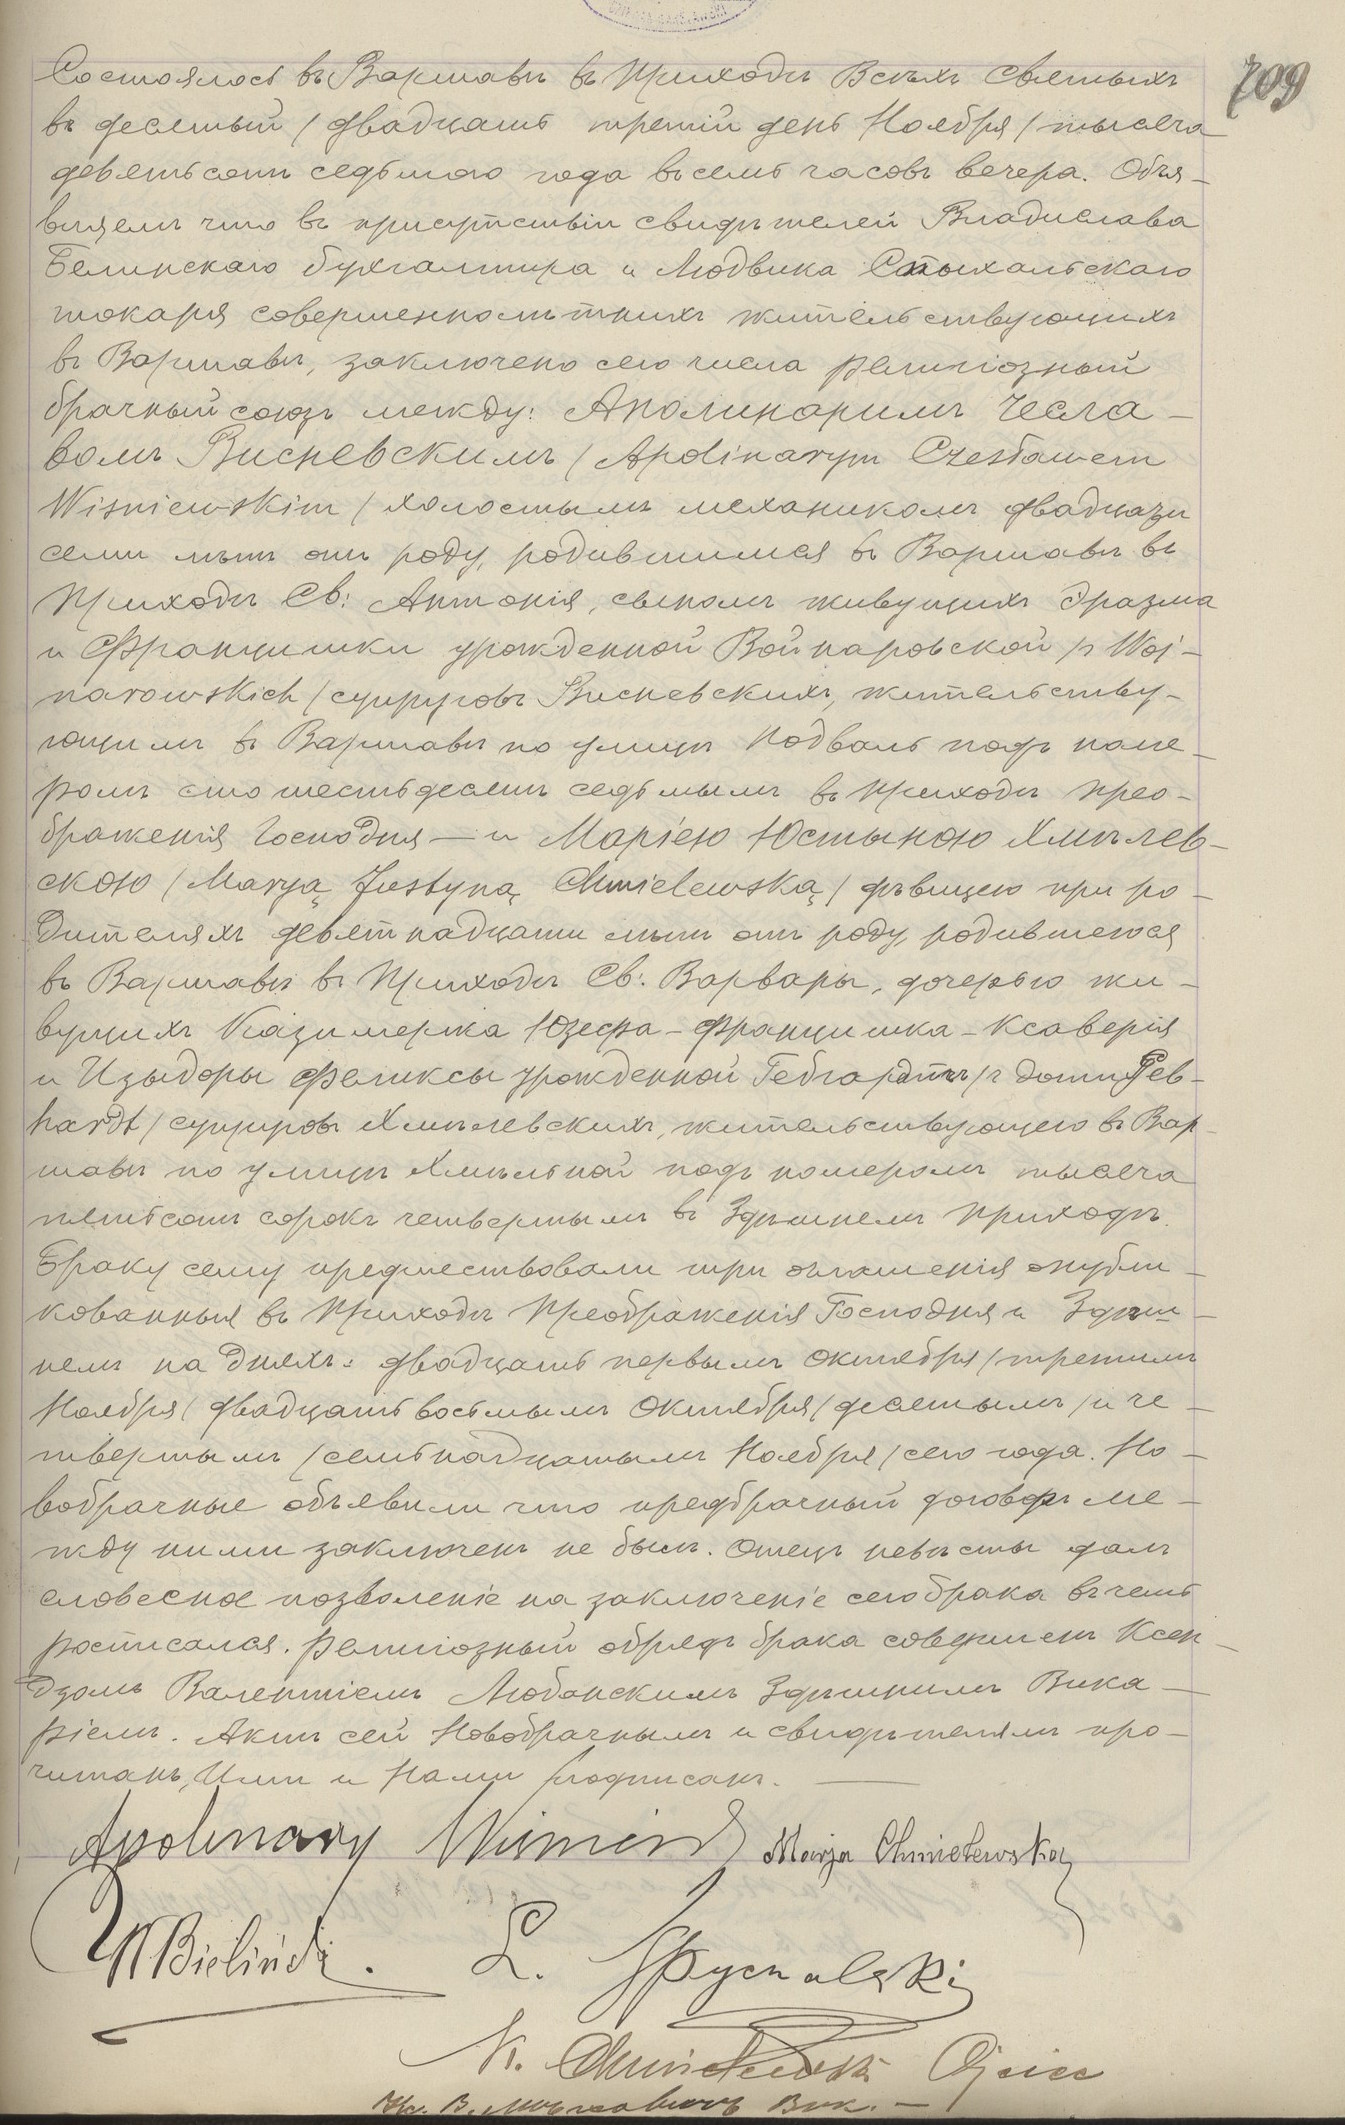 709
Состоялось въ Варшавѣ въ Приходѣ Всѣхъ Святыхъ
въ десятый / двадцать третій день Ноября / тысяча
девятьсотъ седьмого года въ семь часовъ вечера. Объя-
вляемъ что въ присутствіи свидѣтелей Владислава
Белинскаго бухгалтера и Людвика Спыхальскаго
токаря совершеннолѣтнихъ жительствующихъ
въ Варшавѣ, заключено сего числа религіозный
брачный союзъ между: Аполинаримъ Чесла-
вомъ Висневскимъ / Apolinarym Czesławem
Wisniewskim / холостымъ механикомъ двадцати
семи лѣтъ отъ роду, родившимся въ Варшавѣ въ
Приходѣ Св: Антонія, сыномъ живущихъ Эразма
и Францишки урожденной Войнаровской / z Woj-
narowskich / супруговъ Висневскихъ, жительству-
ющимъ въ Варшавѣ по улицѣ Подваль подъ номе-
ромъ сто шестьдесятъ седьмымъ въ Приходѣ Прео-
браженія Господня — и Маріею Юстыною Хмѣлев-
скою / Maryą Justyną Chmielewską / дѣвицею при ро-
дителяхъ девятнадцати лѣтъ отъ роду, родившеюся
въ Варшавѣ въ Приходѣ Св: Варвары, дочерью жи-
вущихъ Казимержа Юзефа-Францишка-Ксаверія
и Изыдоры Феликсы урожденной Гебгардтъ / z domu Geb-
hardt / супруговъ Хмѣлевскихъ, жительствующею въ Вар-
шавѣ по улицѣ Хмѣльной подъ номеромъ тысяча
пятьсотъ сорокъ четвертымъ въ Здѣшнемъ Приходѣ.
Браку сему предшествовали три оглашенія опубли-
кованныя въ Приходѣ Преображенія Господня и Здѣш-
немъ на дняхъ: двадцать первымъ Октября / третьимъ
Ноября / двадцать восьмымъ Октября / десятымъ / и че-
твертымъ / семьнадцатымъ Ноября / сего года. Но-
вобрачные объявили что предбрачный договоръ ме-
жду ними заключенъ не былъ. Отецъ невѣсты далъ
словесное позволеніе на заключеніе сего брака въ чемъ
росписался. Религіозный обрядъ брака совершенъ Ксен-
дзомъ Валентіемъ Любанскимъ Здѣшнимъ Вика-
ріемъ. Актъ сей Новобрачнымъ и свидѣтелямъ про-
читанъ, Ими и Нами подписанъ. —
Apolinary Wisniewski Marja Chmielewska
W Bieliński. L. Spychalski
K. Chmielewski Ojciec
Кс. В. Вик. —